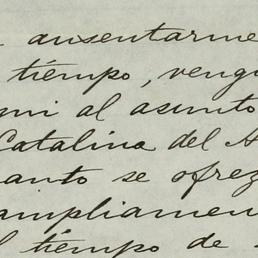 ausentarme
tiempo, veng
mi al asunto
Catalina del
anto se ofrez
ampliamen
tiempo de